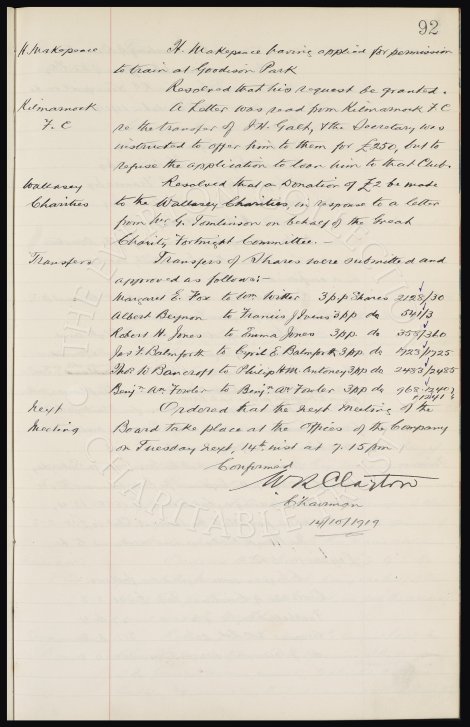 92
H. Makepeace H. Makepeace having applied for permission
to train at Goodison Park
Resolved that his request be granted.
Kilmarnock A Letter was read from Kilmarnock F C
F. C re the transfer of J. H. Galt, & the Secretary was
instructed to offer him to them for £250, but to
refuse the application to loan him to that Club.
Wallasey Resolved that a Donation of £2 be made
Charities to the Wallasey Charities, in response to a letter
from Mr G. Tomlinson on behalf of the Great
Charity Fortnight Committee. —
Transfers Transfers of Shares were submitted and
approved as follows:-
Margaret E. Fox to Wm Witter 3 p p Shares 2128/30
Albert Beynon to Francis J 3 pp do 541/3
Robert H. Jones to Emma Jones 3 pp. do 358/360
Jas F. Balmforth to Cyril E. Balmforth 3 pp. do 1723/1725
Thos W. Bancroft to Philip H. M. 3 pp do 2483/2485
Benjn Wm Fowler to Benjn Wm Fowler 3 pp do 968
Next Ordered that the next Meeting of the
Meeting Board take place at the Offices of the Company
on Tuesday next, 14th inst at 7.15 pm
Confirmed
W R Clayton
Chairman
14/10/1919
THE EVERTON COLLECTION
CHARITABLE